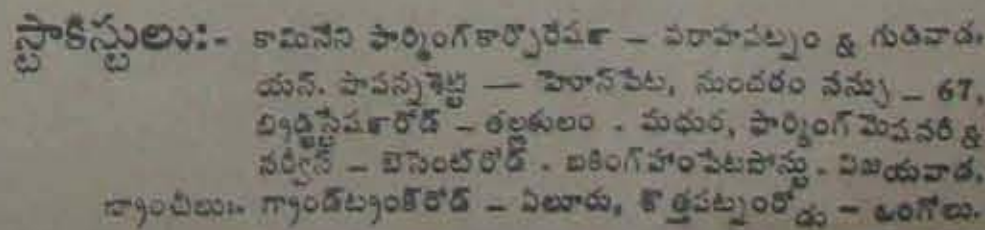 స్టాకిస్టులు:- కామినేని ఫార్మింగ్ కార్పొరేషన్ — వరాహపట్నం & గుడివాడ.
యన్. పాపన్నశెట్టి — హెరాన్‌పేట, సుందరం నన్ను — 67,
బ్రిడ్జిస్టేషన్‌రోడ్ – తల్లకులం - మధుర, ఫార్మింగ్ మెషనరీ &
సర్వీస్ – బెసెంట్‌రోడ్ - బకింగ్‌హాంపేటపోస్టు - విజయవాడ.
బ్రాంచీలు:- గ్రాండ్‌ట్రంక్‌రోడ్ – ఏలూరు, కొత్తపట్నంరోడ్డు – ఒంగోలు.